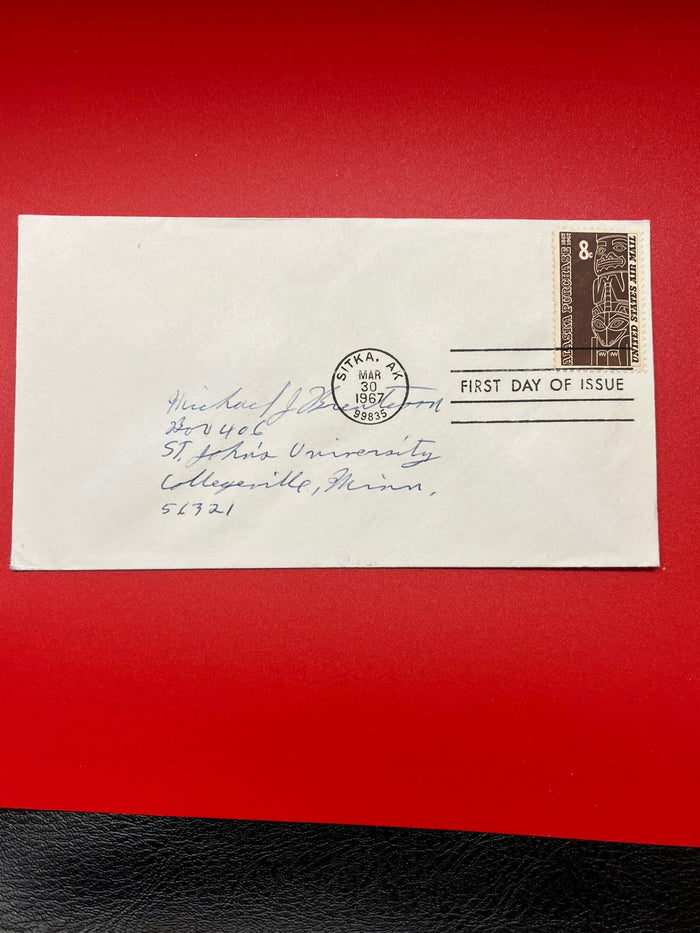 8c
ALASKA PURCHASE 1867 1967
UNITED STATES AIR MAIL
SITKA, AK
MAR
30
1967
99835
FIRST DAY OF ISSUE
Michael J
Box 406
St. John's University
Collegeville, Minn.
56321